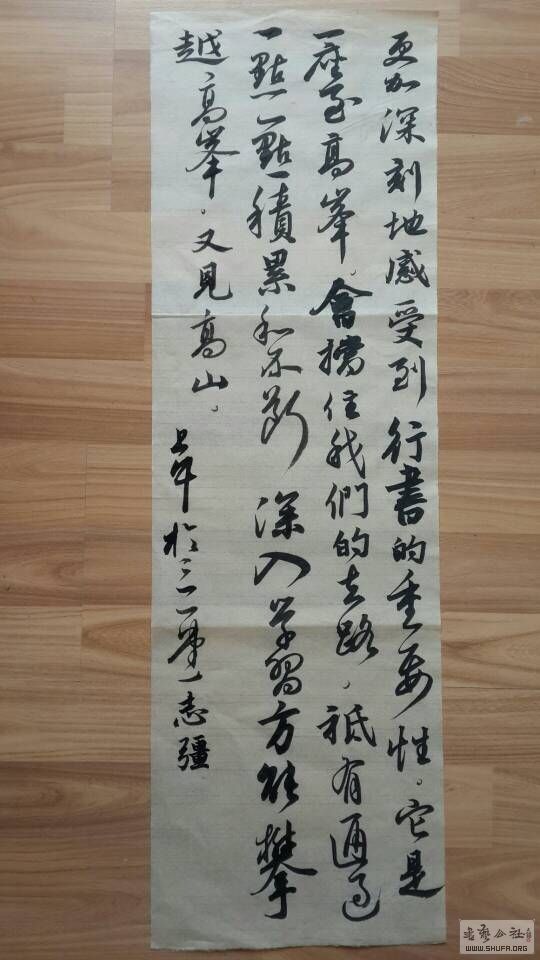 更加深刻地感受到行書的重要性。它是
一座至高峯。會擋住我們的去路,祗有通過
一點一點積累和不斷深入學習方能攀
越高峯。又見高山。
於三一 一志疆
书艺公社
WWW.SHUFA.ORG